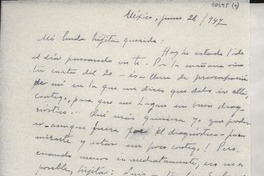 México, junio 26/947
Mi linda hijita querida:
Hoy he estado todo
el día pensando en ti. Por la mañana vino
tu carta del 20 - llena de preocupación
de mí en la que me dices que debo ir allá,
contigo, para que me hagan un buen diag-
nóstico. Qué más quisiera yo que poder
- aunque fuera por el diagnóstico - para
mirarte y estar un poco contigo! Pero,
cuando menos inmediatamente, eso no es
posible, hijita: